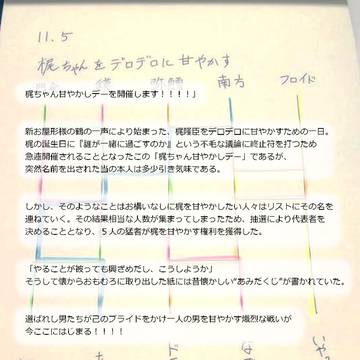 11.5
梶ちゃんをデロデロに甘やかす
南方 フロイド
梶ちゃん甘やかしデーを開催します！！！！」
新お屋形様の鶴の一声により始まった、梶隆臣をデロデロに甘やかすための一日。
梶の誕生日に『誰が一緒に過ごすのか』という不毛な議論に終止符を打つため
急遽開催されることとなったこの「梶ちゃん甘やかしデー」であるが、
突然名前を出された当の本人は多少引き気味である。
しかし、そのようなことはお構いなしに梶を甘やかしたい人々はリストにその名を
連ねていく。その結果相当な人数が集まってしまったため、抽選により代表者を
決めることとなり、５人の猛者が梶を甘やかす権利を獲得した。
「やることが被っても興ざめだし、こうしようか」
そうして懐からおもむろに取り出した紙には昔懐かしい“あみだくじ”が書かれていた。
選ばれし男たちが己のプライドをかけ一人の男を甘やかす熾烈な戦いが
今ここにはじまる！！！！